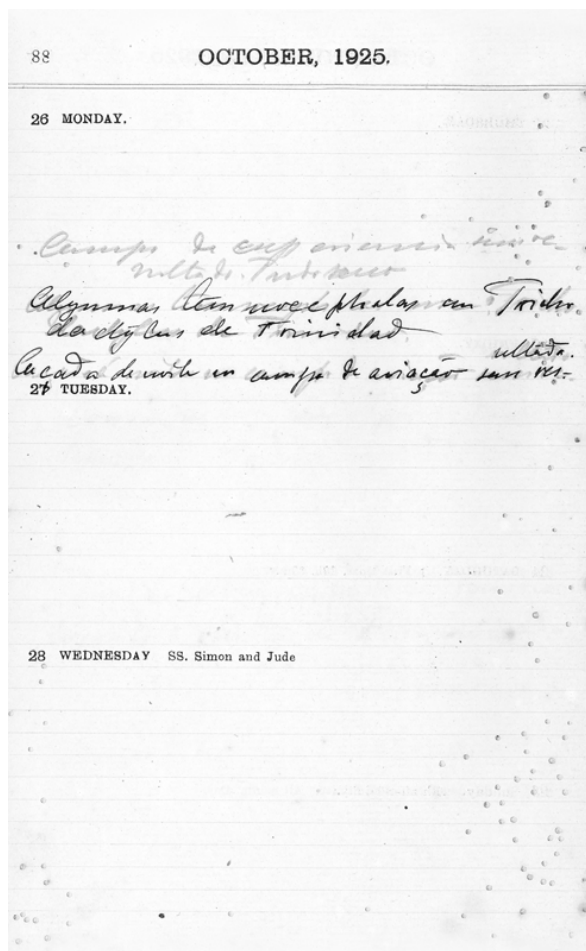 88 OCTOBER, 1925.
26 MONDAY.
Campo de experiencia
Algumas Temnocephalas em Tricho
dactylus de Trinidad
ultado.
Caçada de noite no campo de aviação sem res-
27 TUESDAY.
28 WEDNESDAY SS. Simon and Jude